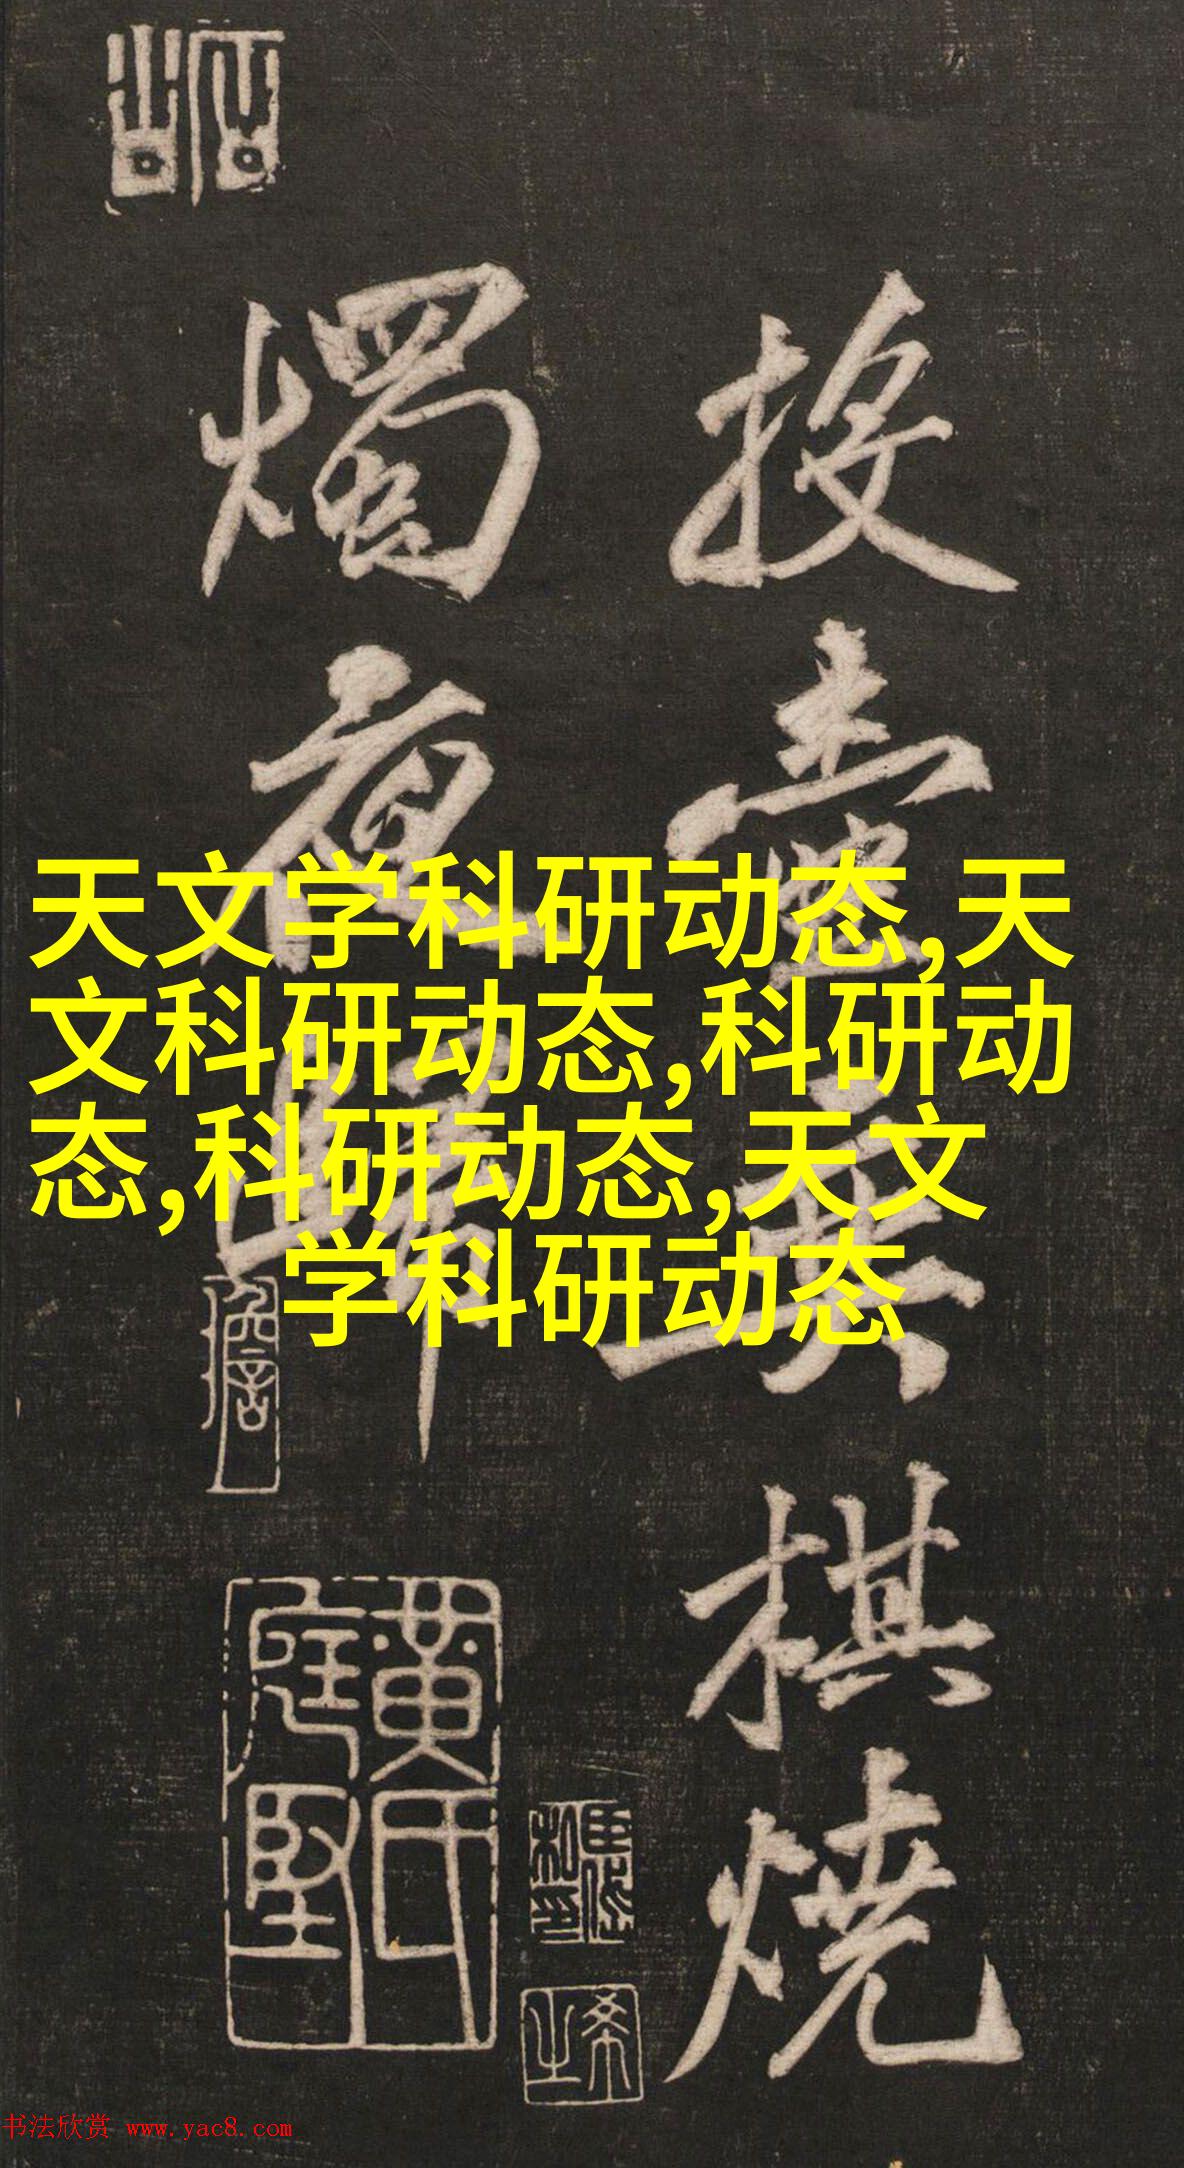 天文学科研动态,天
文科研动态,科研动
态,科研动态,天文
学科研动态
投壺棋燒
燭夜歸
黃氏
庭堅
书法欣赏 www.yac8.com